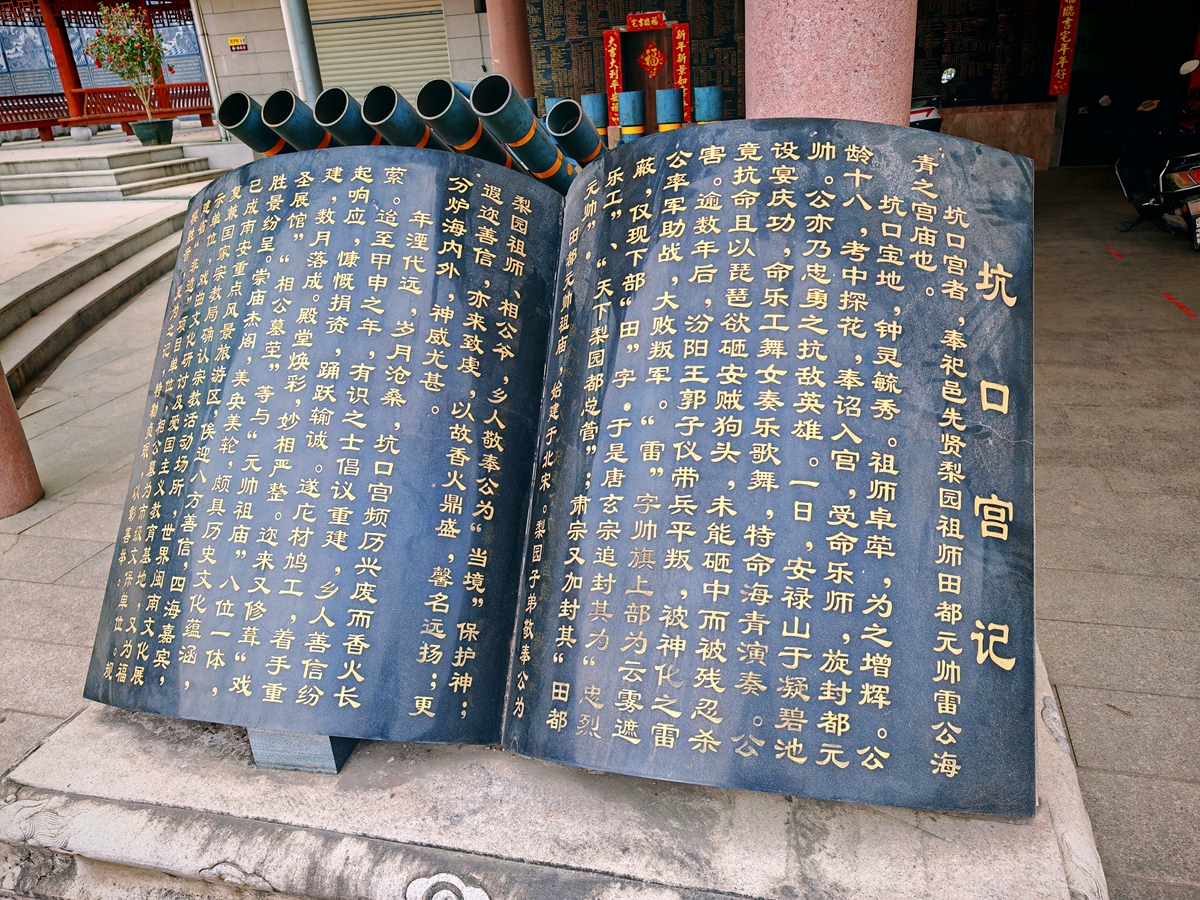 坑口宫记
坑口宫者，奉祀邑先贤梨园祖师田都元帅雷公海
青之宫庙也。
坑口宝地，钟灵毓秀。祖师卓荦，为之增辉。公
龄十八，考中探花，奉诏入宫，受命乐师，旋封都元
帅。公亦乃忠勇之抗敌英雄。一日，安禄山于凝碧池
设宴庆功，命乐工舞女奏乐歌舞，特命海青演奏。公
竟抗命且以琵琶欲砸安贼狗头，未能砸中而被残忍杀
害。逾数年后，汾阳王郭子仪带兵平叛，被神化之雷
公率军助战，大败叛军。“雷”字帅旗上部为云雾遮
蔽，仅现下部“田”字。于是唐玄宗追封其为“忠烈
乐工”、“天下梨园都总管”；肃宗又加封其“田都
元帅”。
田都元帅祖庙，始建于北宋。梨园子弟敬奉公为
梨园祖师、相公爷，乡人敬奉公为“当境”保护神；
遐迩善信，亦来致虔，以故香火鼎盛，馨名远扬；更
分炉海内外，神威尤甚。
年湮代远，岁月沧桑，坑口宫频历兴废而香火长
萦。迨至甲申之年，有识之士倡议重建，乡人善信纷
起响应，慷慨捐资，踊跃输诚。遂庀材鸠工，着手重
建，数月落成。殿堂焕彩，妙相严整。迩来又修葺“戏
圣展馆”“相公墓茔”等与“元帅祖庙”八位一体，
胜景纷呈。崇庙杰阁，美奂美轮，颇具历史文化蕴涵，
已成南安重点风景旅游区，俟迎八方善信，四海嘉宾，
复兼国家宗教局确认宗教活动场所，世界闽南文化展
示单位，戏曲文化研讨及爱国主义教育基地，又为福
建省“非遗”项目单位，相公墓为市级文保单位。规
模胜昔，爰为之记，特勒贞珉，以彰善举。
福临吉宅
新年新景如
大吉大利平安福
福
福临吉宅年年好